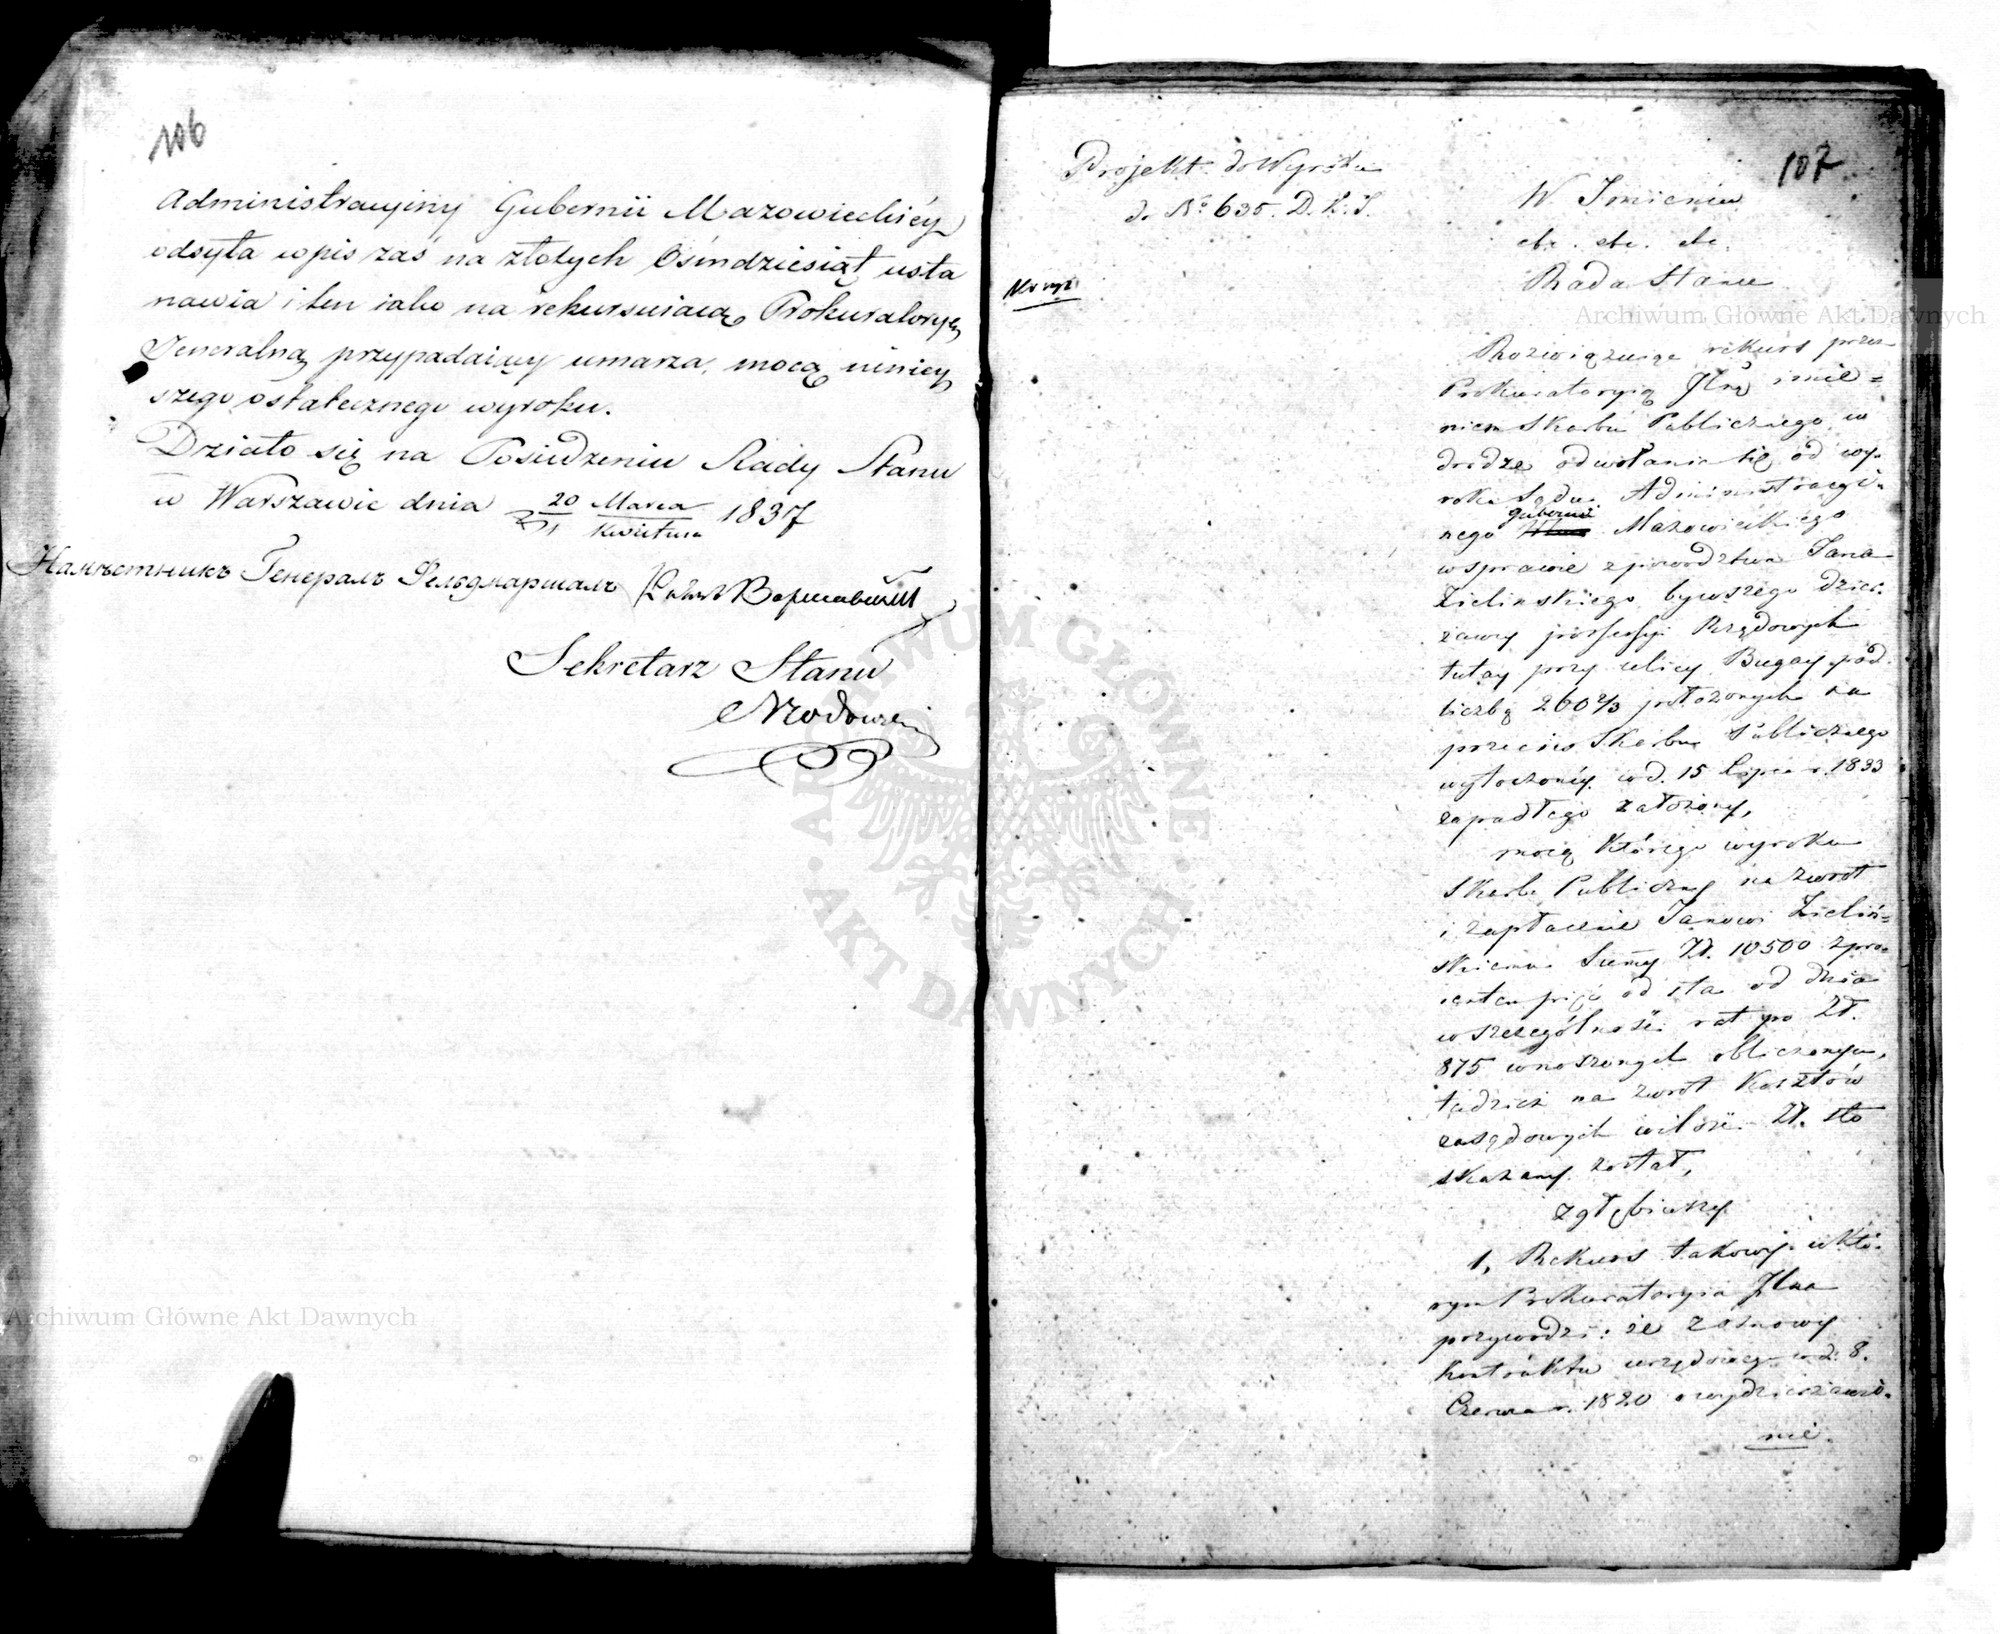 106
Administracyiny Gubernii Mazowieckiéy
odsyła wpis zaś na złotych Ośmdziesiąt usta
nawia i ten iako na rekursuiącą Prokuratoryą
Jeneralną przypadaiący umarza, mocą niniey
szego ostatecznego wyroku.
Działo się na Posiedzeniu Rady Stanu
w Warszawie dnia 20 Marca / 1 Kwietnia 1837
Намѣстникъ Генералъ Фельдмаршалъ Варшавскій
Sekretarz Stanu
107
Projekt do Wyroku
do No 635. D. K. S.
W Imieniu
etc. etc. etc.
Rada Stanu
Rozwiązuiąc rekurs przez
Prokuratoryą Jlną imie=
niem Skarbu Publicznego w
drodze odwołania się od wy-
roku Sądu Administracyi-
nego gubernii Mazowieckiego
w sprawie z powództwa Jana
Zielinskiego bywszego dzier-
żawcy possessyi Rządowych
tutay przy ulicy Bugay pod
liczbą 260 2/3 położonych na
przeciw Skarbu Publicznego
wytoczonéy w d. 15 Lipca r. 1833
zapadłego założony,
mocą którego wyroku
Skarb Publiczny na zwrot
i zapłacenie Janowi Zieliń=
skiemu Summy Zł. 10500 z pro-
centem pięć od sta od dnia
w szczególności rat po Zł.
875 wnoszonych obliczonym,
tudzież na zwrot kosztów
zasądowych w ilości Zł. sto
skazany został,
zgłębiwszy
1, Rekurs takowy w któ-
rym Prokuratorya Jlna
przywodzi: że z osnowy
kontraktu urzędowego w d. 8.
Czerwca r. 1820 o wydzierżawie-
nie